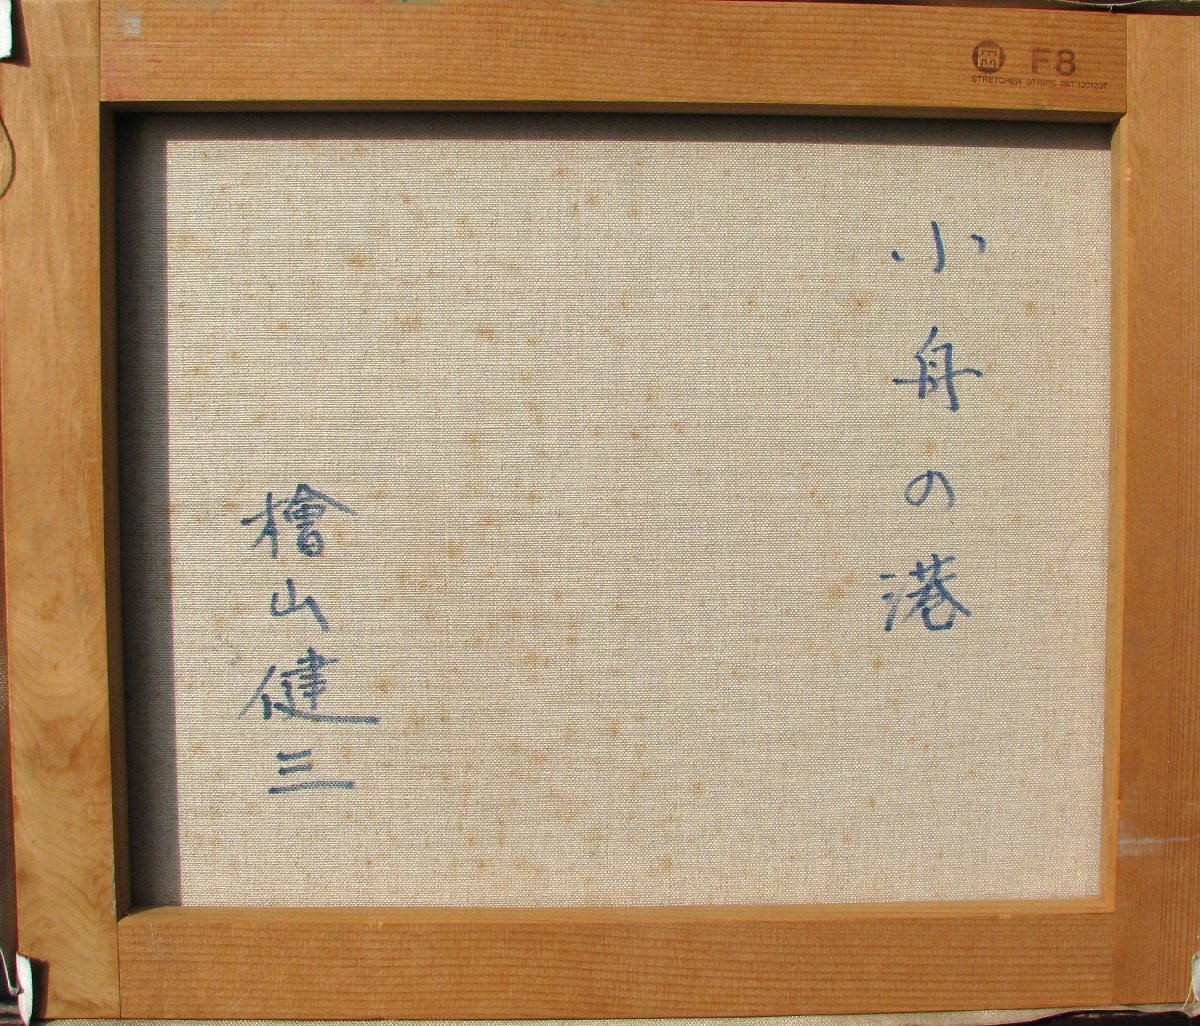 小舟の港
檜山健三
F8
STRETCHER STRIPS PAT 1201237